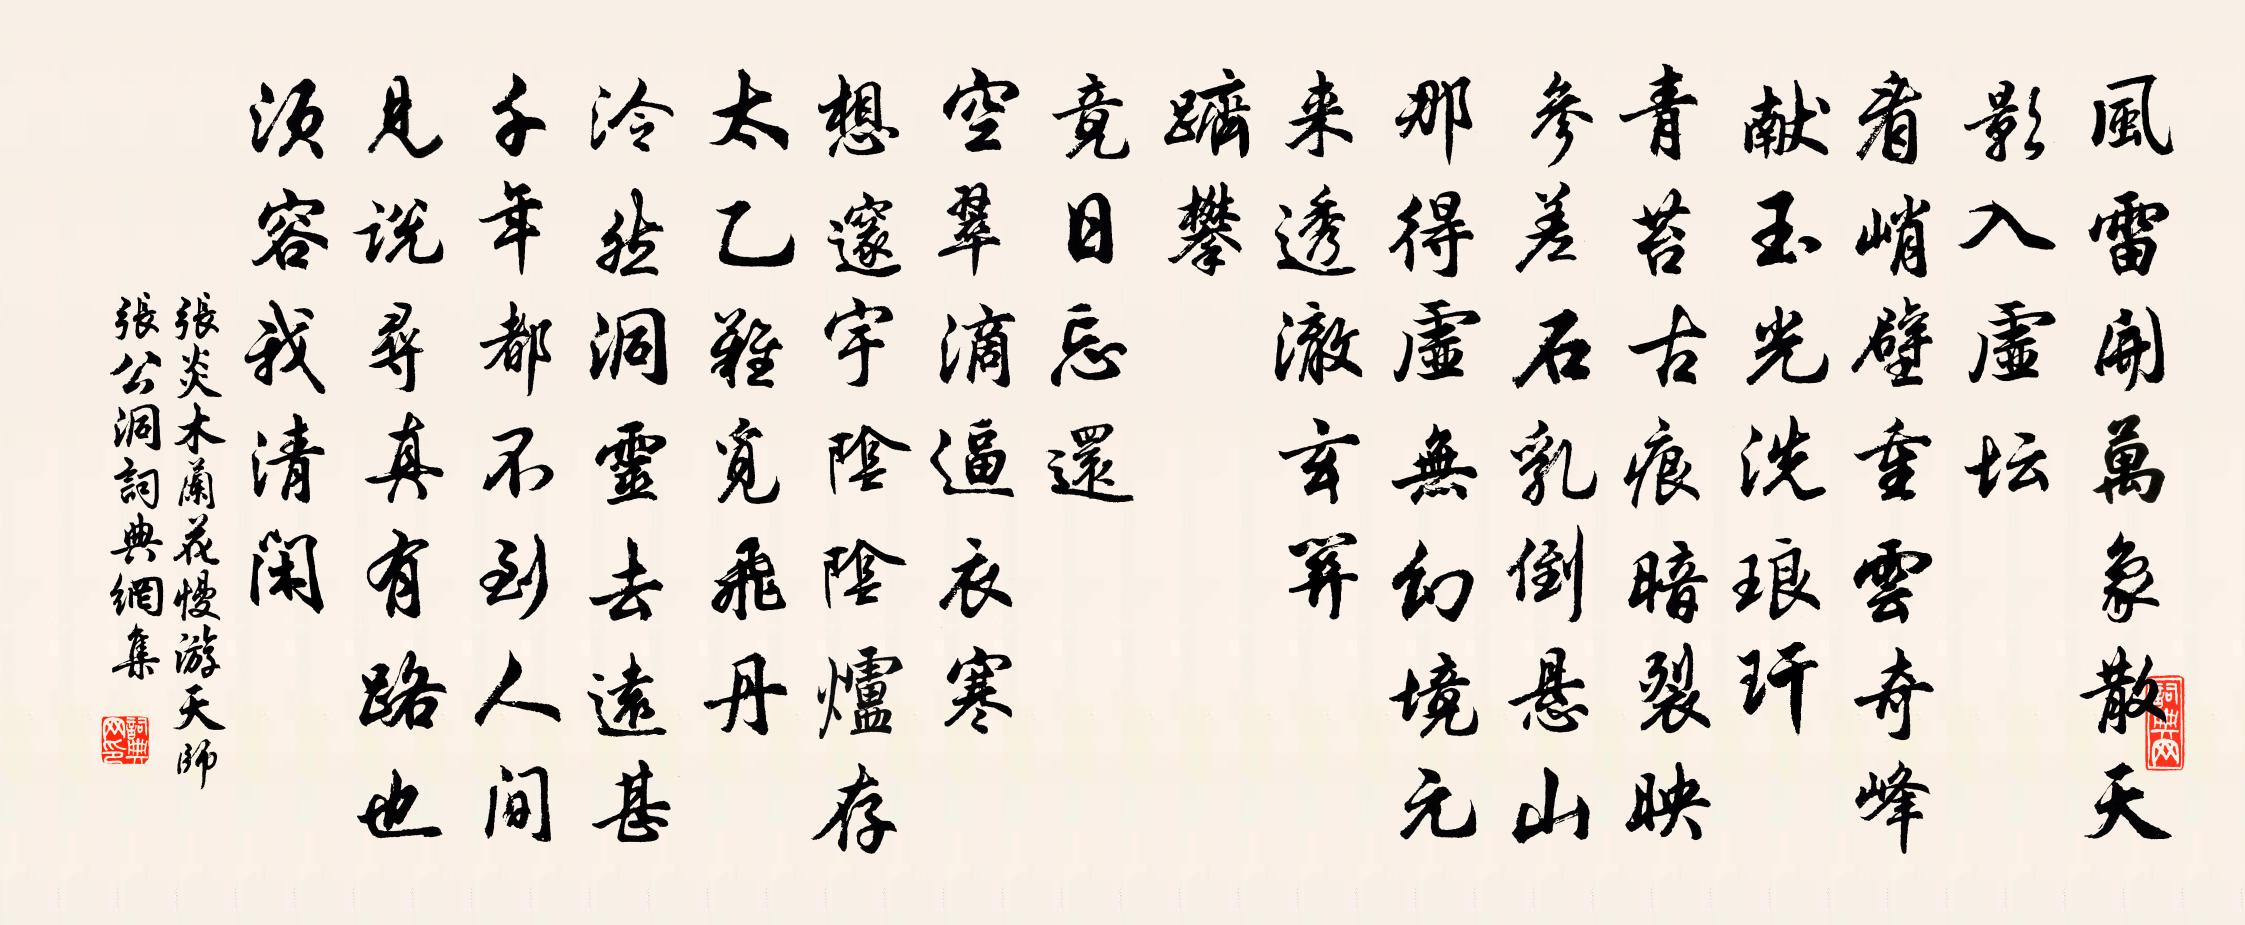 風雷開萬象散天
影入虛坛
看峭壁重雲奇峰
献玉光洗琅玕
青苔古痕暗裂映
參差石乳倒悬山
那得虛無幻境元
来透澈玄関
躋攀
竟日忘還
空翠滴逼衣寒
想邃宇陰陰爐存
太乙難覓飛丹
泠然洞靈去遠甚
千年都不到人间
見说尋真有路也
须容我清閑
張炎木蘭花慢游天師
張公洞詞典網集
詞典网
詞典网印